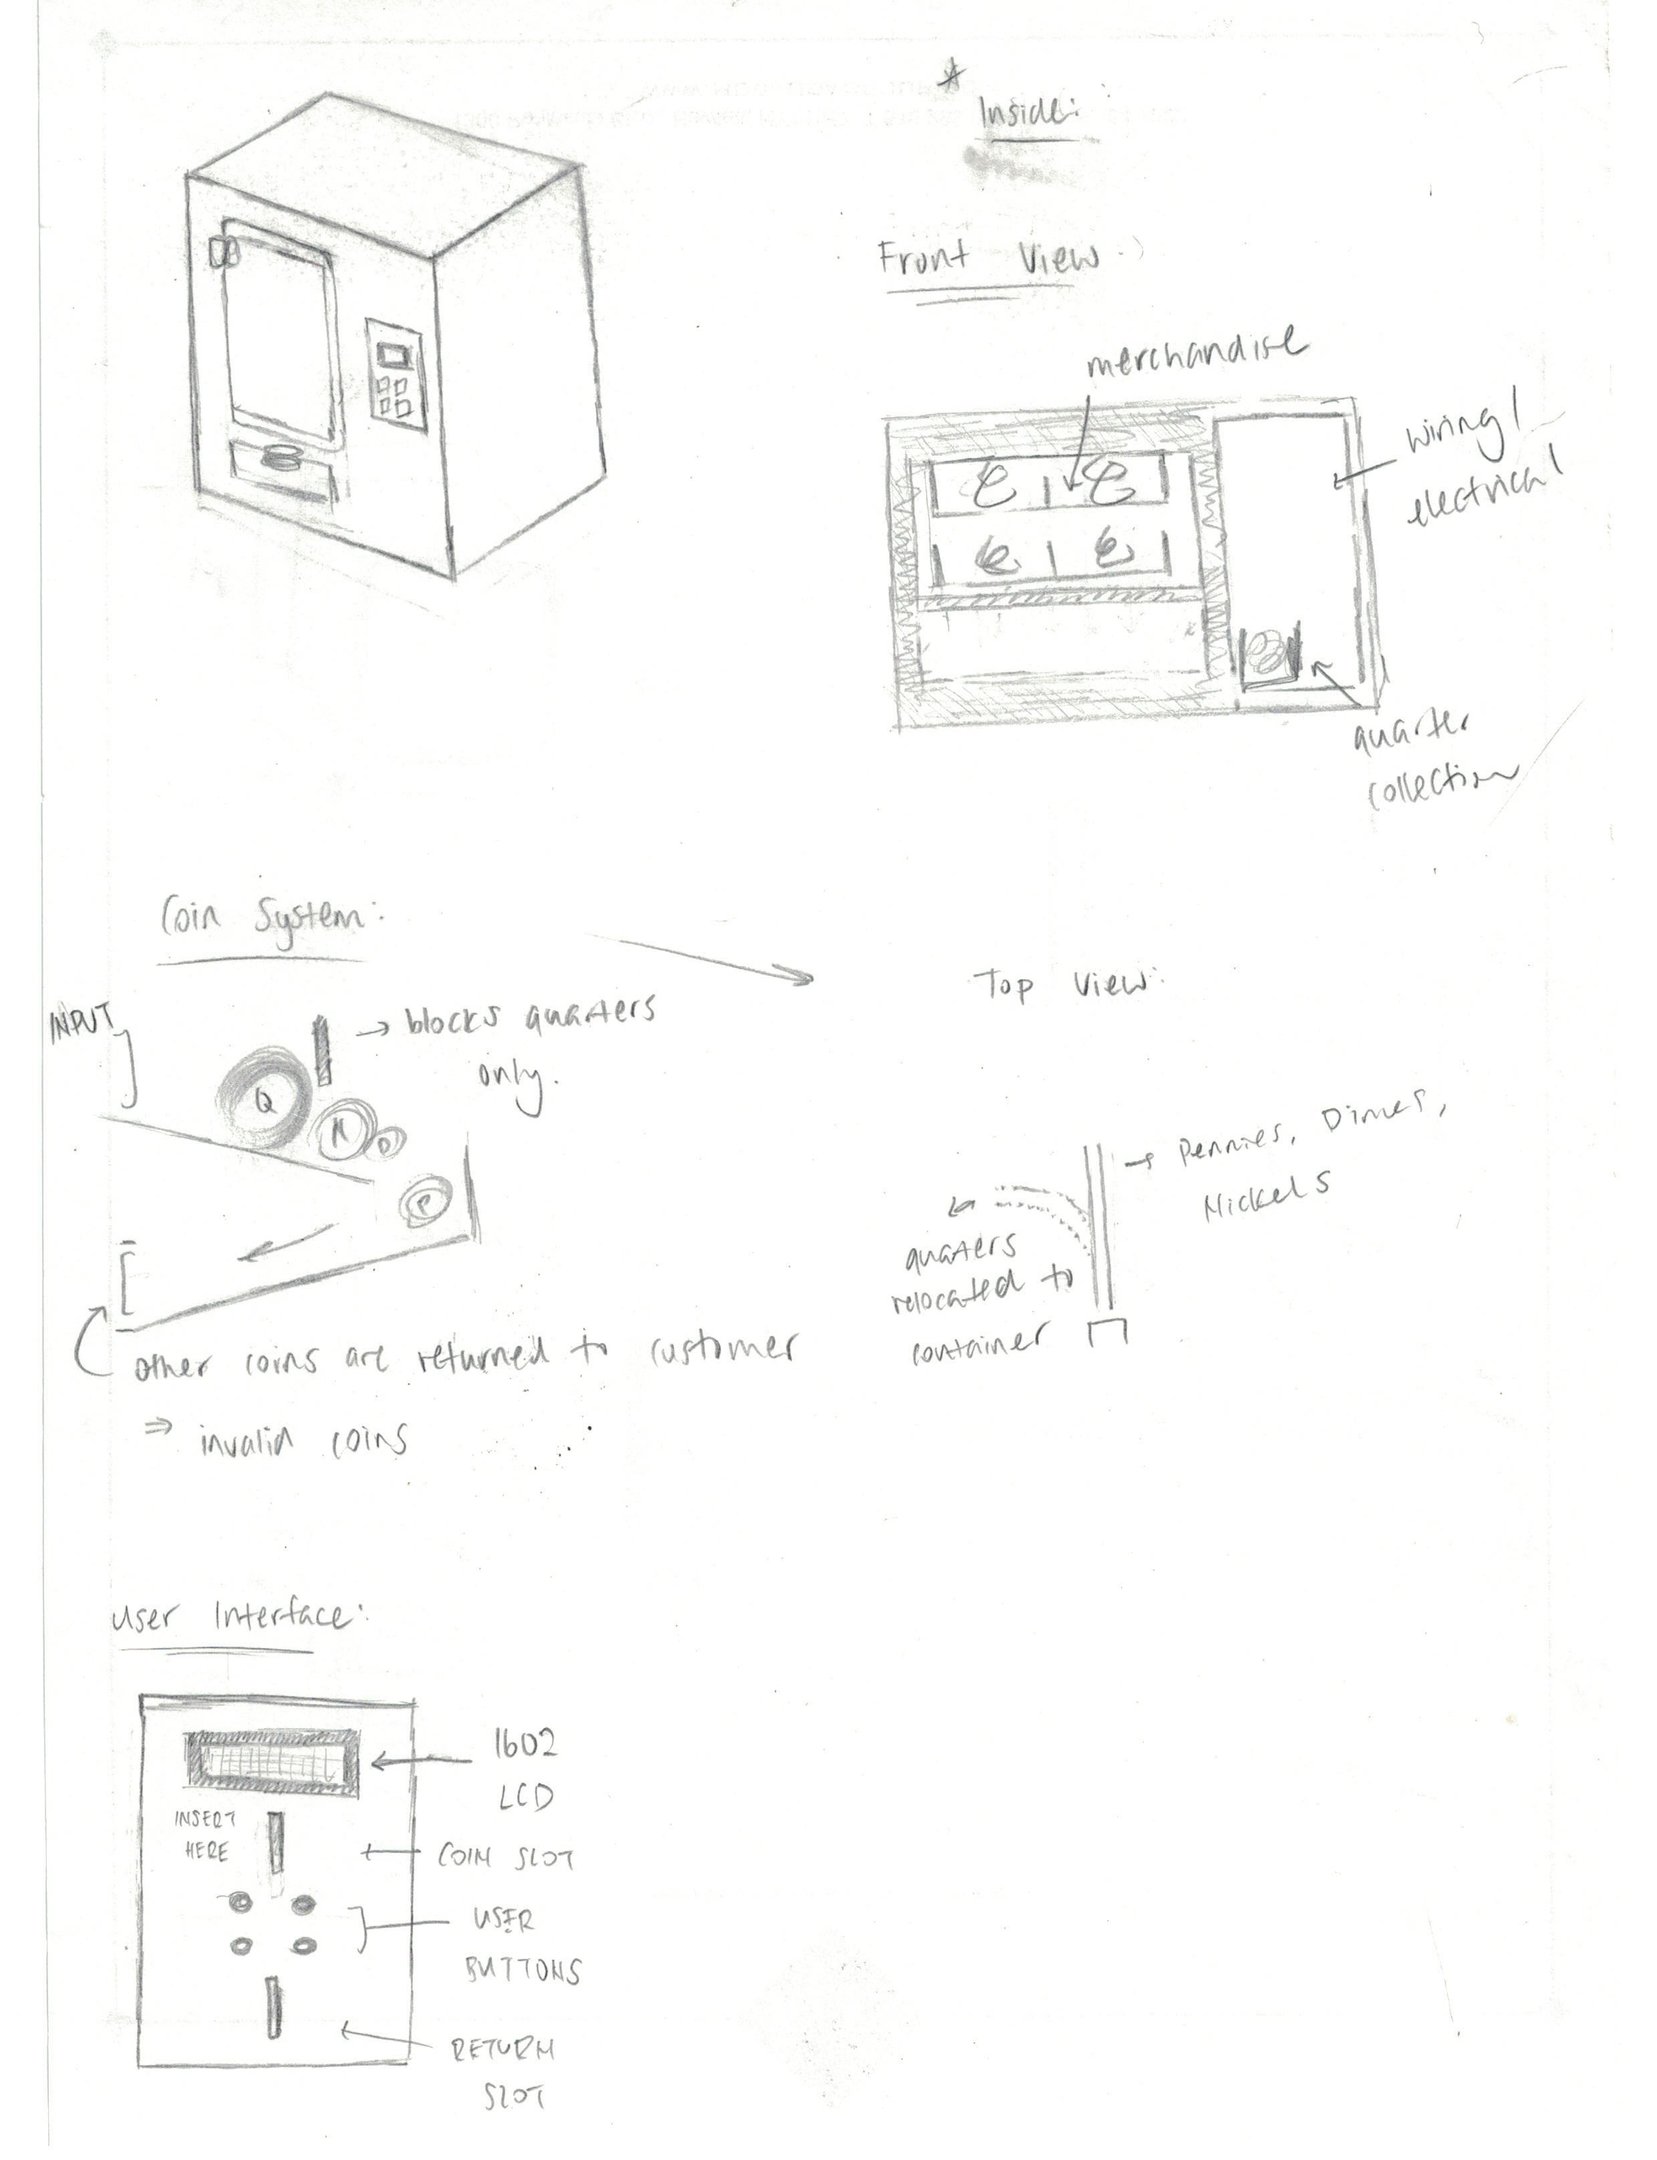 * Inside:
Front View:
merchandise
wiring/
electrical
quarter
collection
Coin System:
INPUT
→ blocks quarters
only.
Q
N
D
P
other coins are returned to customer
⇒ invalid coins
Top View:
→ Pennies, Dimes,
Nickels
quarters
relocated to
container
User Interface:
1602
LCD
INSERT
HERE
COIN SLOT
USER
BUTTONS
RETURN
SLOT